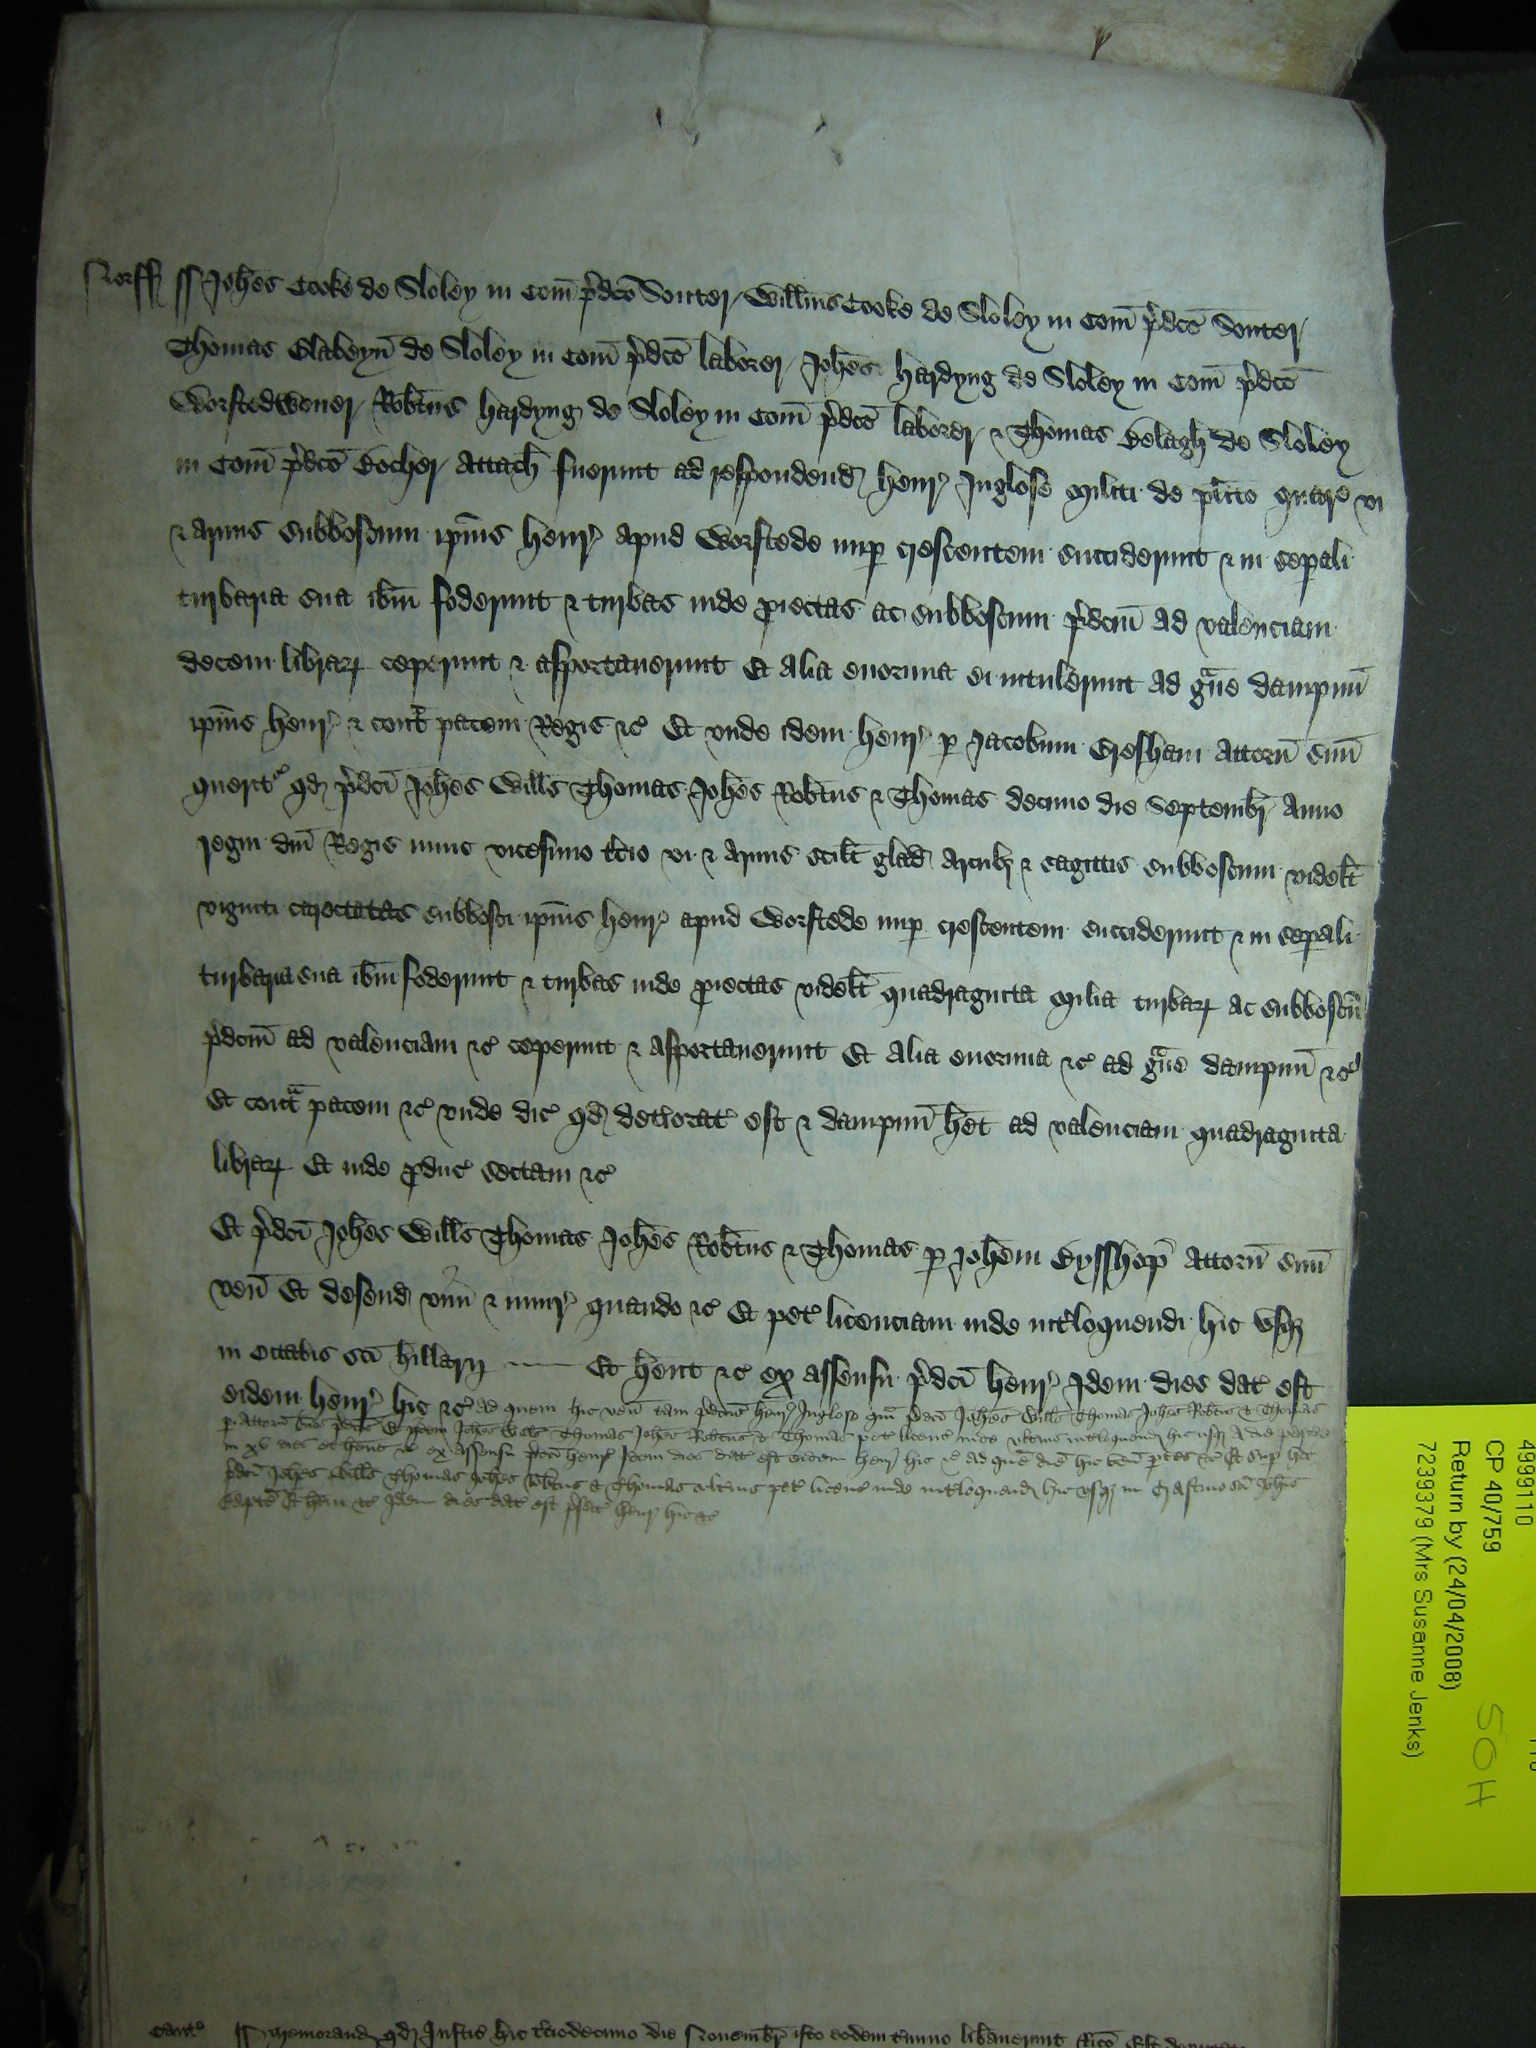 Norff ss Johes Cooke de Sloley in Com p̄dcō Souter Willms Cooke de Sloley in Com p̄dcō Souter
Thomas de Sloley in Com p̄dcō laborer Johes Hardyng de Sloley in Com p̄dcō
Worstedwever Robtus Hardyng de Sloley in Com p̄dcō laborer & Thomas de Sloley
in Com p̄dcō Bocher attach fuerunt ad respondend Henr Inglose militi de plito quare vi
& armis subboscum ipius Henr apud Worstede nup crescentem succiderunt & in sepali
turbaria sua ibm foderunt & turbas inde piectas ac subboscum p̄dcm ad valenciam
decem librar ceperunt & asportaverunt Et alia enormia ei intulerunt ad gve dampnu
ipius Henr & cont pacem Regis &c Et unde idem Henr p Jacobum Gresham attorn suu
querit qd p̄dci Johes Wills Thomas Johes Robtus & Thomas decimo die Septembr Anno
regni dni Regis nunc vicesimo tcio vi & armis scilt glad arcub & sagittis subboscum videlt
viginti carectatas subbosci ipius Henr apud Worstede nup crescentem succiderunt & in sepali
turbaria sua ibm foderunt & turbas inde piectas videlt quadraginta milia turbar ac subboscu
p̄dcm ad valenciam &c ceperunt & asportaverunt Et alia enormia &c ad gve dampnu &c
Et contª pacem &c unde dic qd det̄iorat est & dampnu het ad valenciam quadraginta
librar Et inde pduc sectam &c
Et p̄dci Johes Wills Thomas Johes Robtus & Thomas p Johem Bysshop attorn suu
ven Et defend vim & iniur quando &c Et pet licenciam inde int̄loquendi hic usq
in Octabis sci Hillarij Et hent &c ex assensu p̄dci Henr Idem dies dat est
eidem Henr hic &c ad quem hic ven tam p̄dcus Henr Inglose qm p̄dci Johes Wills Thomas Johes Robtus & Thomas
p attorn suos p̄dcos Et Johes Wills Thomas Johes Robtus & Thomas pet licenc inde ulterius int̄loquend hic usq a die pasche
in xv dies et hent &c ex assensu p̄dci Henr Idem dies datus est eidem Henr hic &c Ad quem diem hic ven ptes &c Et sup hoc
p̄dci Johes Wills Thomas Johes Robtus & Thomas ulterius pet licenc inde int̄loquend hic usq in Crastino sci Johis
Bapte Et hent &c Idem dies dat est p̄fat Henr hic &c
Canc ss Memorand qd Justic hic t̄ciodecimo die Novembr isto eodem t̄mino libaverunt
4999110
CP 40/759
Return by (24/04/2008)
7239379 (Mrs Susanne Jenks)
SOH